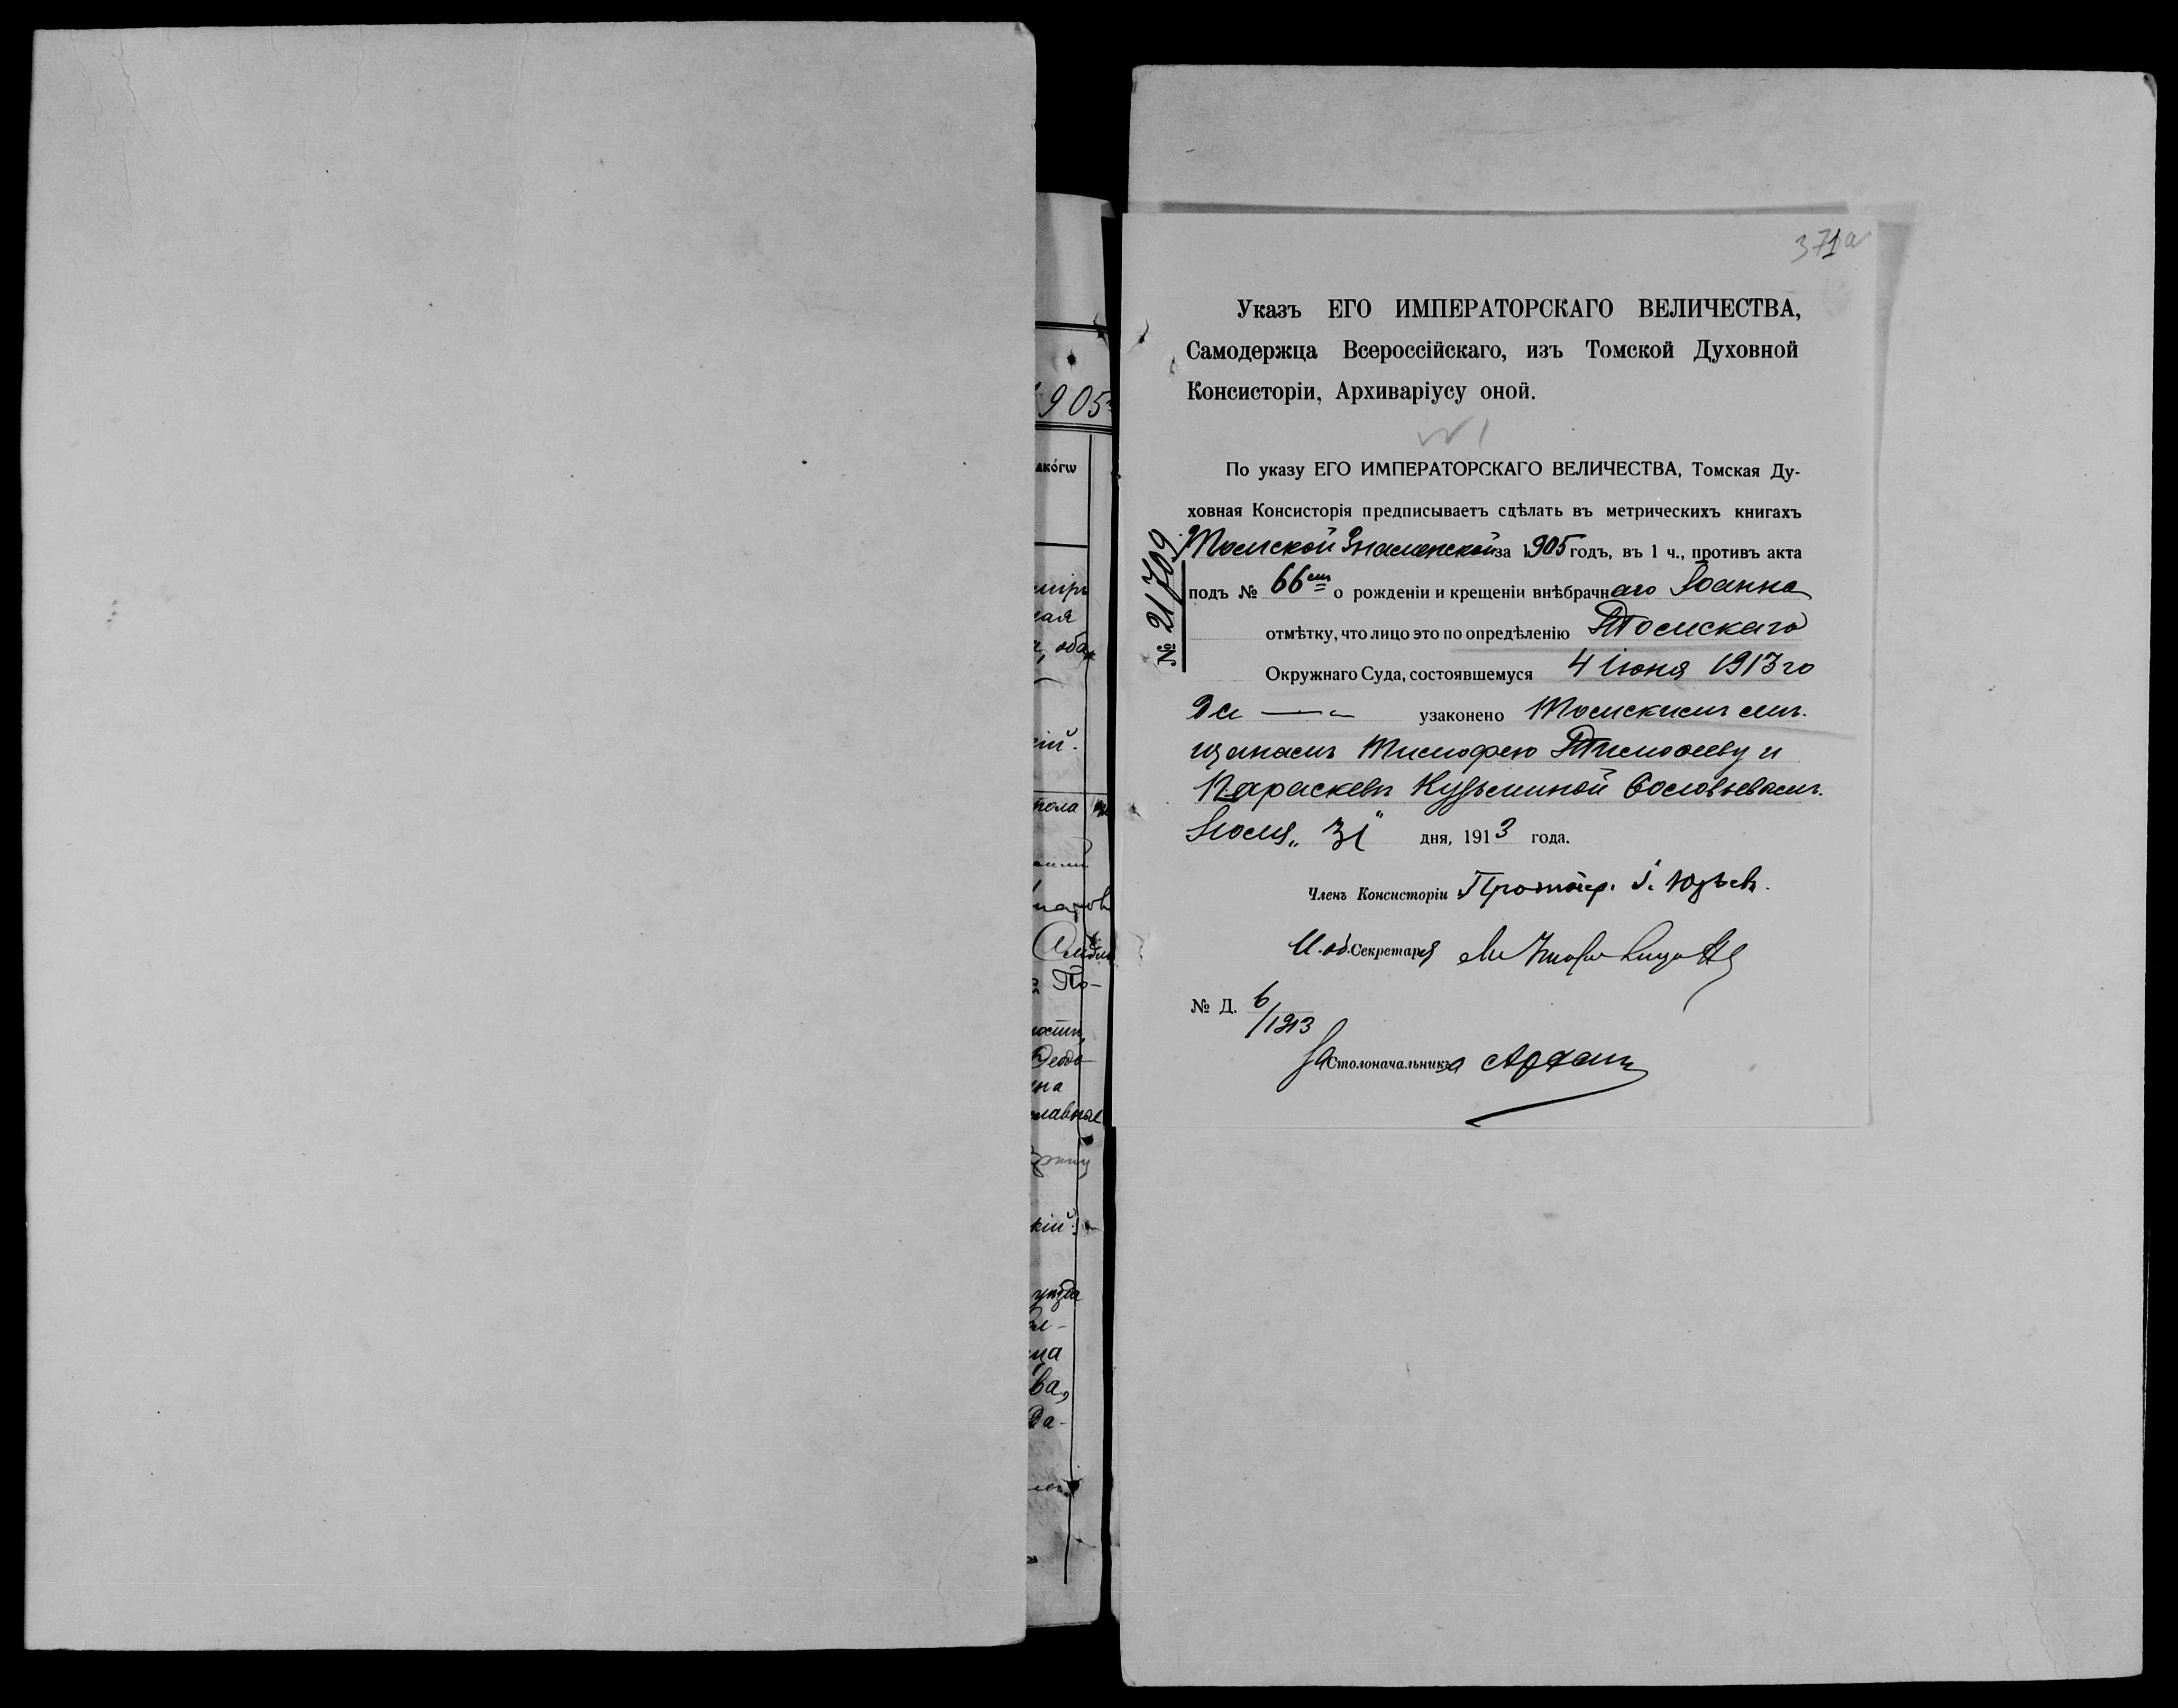 905
акóгw
ая
оба
кій.
пола
По-
Ѳеодо
на
славные
кій.
уѣзда
ца
ва,
Да-
371а
Указъ ЕГО ИМПЕРАТОРСКАГО ВЕЛИЧЕСТВА,
Самодержца Всероссійскаго, изъ Томской Духовной
Консисторіи, Архиваріусу оной.
По указу ЕГО ИМПЕРАТОРСКАГО ВЕЛИЧЕСТВА, Томская Ду-
ховная Консисторія предписываетъ сдѣлать въ метрическихъ книгахъ
Томской Знаменской за 1905 годъ, въ 1 ч., противъ акта
подъ № 66 о рожденіи и крещеніи внѣбрачнаго Іоанна
отмѣтку, что лицо это по опредѣленію Томскаго
Окружнаго Суда, состоявшемуся 4 Іюня 1913 го
да узаконено Томскимъ мѣ-
щанамъ Тимофею Тимофееву и
Параскевѣ Кузьминой Соловьевымъ.
Іюля „31" дня, 1913 года.
Членъ Консисторіи Протоіер. І. Юрьевъ.
И. об. Секретаря
№ Д. 6/1913
За Столоначальника
№ 21709